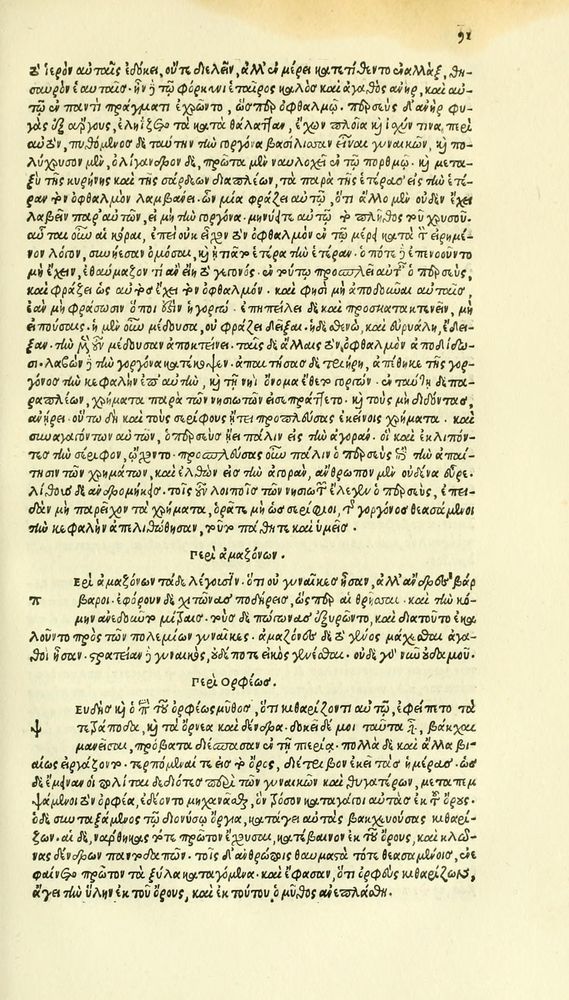 91
τ' ἱερὸν αὐταῖς ἐδόκει, οὔτε διελεῖν, ἀλλ' ἐν μέρει κατετίθεντο ἐναλλὰξ, θη-
σαυρὸν ἑαυταῖσ. ἦν ἢ τῷ φόρκωνι ἑταῖρος καλὸσ καὶ ἀγαθὸς ἀνὴρ, καὶ αὐ-
τῷ ἐν παντὶ πράγματι ἐχρῶντο, ὥσπερ ὀφθαλμῷ. περσεὺς δ' ἀνὴρ φυ-
γὰς ἐξ ἄργους, ἐληΐζετο τὰ κατὰ θάλατταν, ἔχων πλοῖα κὴ ἰσχύν τινα περὶ
αὐτὸν, πυθόμενος δὲ ταύτην τὴν γοργόνα βασίλισσαν εἶναι γυναικῶν, κὴ πο-
λύχρυσον μὲν, ὀλίγανδρον δὲ, πρῶτα μὲν ναυλοχεῖ ἐν τῷ πορθμῷ. κὴ μετα-
ξὺ τῆς κυρήνης καὶ τῆς σάρδεων διαπλέων, τὰ παρὰ τῆς ἑτέρασ εἰς τὴν ἑτέ-
ραν τὸν ὀφθαλμὸν λαμβάνει. ἐν μία φράζει αὐτῷ, ὅτι ἄλλο μὲν οὐδὲν ἔχει
λαβεῖν παρ' αὐτῶν, εἰ μὴ τὴν γοργόνα. μηνύει τε αὐτῷ τὸ πλῆθος τοῦ χρυσοῦ.
αὗται οὖν αἱ κόραι, ἐπεὶ οὐκ εἶχον τὸν ὀφθαλμὸν ἐν τῷ μέρει κατὰ τὸν εἰρημέ-
νον λόγον, συνήεσαν ὁμόσαι, κὴ ἠπᾶτο ἑτέρα τὴν ἑτέραν. ὁ πότε ἢ ἐπενοοῦντο
μὴ ἔχειν, ἐθαύμαζον τί ἂν εἴη τὸ γεγονός. ἐν τούτῳ προσπλεῖ αὐταῖς ὁ περσεὺς,
καὶ φράζει ὡς αὐτὸς ἔχει τὸν ὀφθαλμόν. καὶ φησὶ μὴ ἀποδώσειν αὐταῖσ,
ἐὰν μὴ φράσωσιν ὅποι ἐστὶν ἡ γοργώ. ἐπηπείλει δὲ καὶ προσκατακτενεῖν, μὴ
εἰπούσαις. ἡ μὲν οὖν μέδουσα, οὐ φράζει δεῖξαι. ἡ δὲ θενὼ, καὶ εὐρυάλη, ἔδει-
ξαν. τὴν μὲν οὖν μέδουσαν ἀποκτείνει. ταῖς δὲ ἄλλαις τὸν ὀφθαλμὸν ἀποδίδω-
σι. λαβὼν ἢ τὴν γοργόνα κατέκοψεν. ἀπαιτήσασ δὲ τριήρη, ἀπέθηκε τῆς γορ-
γόνος τὴν κεφαλὴν ἐπ' αὐτὴν, κὴ τῇ νηῒ ὄνομα ἔθετο γοργών. ἐν ταύτῃ δὲ πα-
ραπλέων, χρήματα παρὰ τῶν νησιωτῶν εἰσεπράττετο. κὴ τοὺς μὴ διδόντασ,
ἀνῄρει. οὕτω δὴ καὶ τοὺς σερίφους ᾔτει προσπλεύσας ἐκείνοις χρήματα. καὶ
συναγαγόντων αὐτῶν, ὁ περσεὺς ᾔει πάλιν εἰς τὴν ἀγοράν. οἱ καὶ ἐκλιπόν-
τες τὴν σερίφον, ᾤχοντο. προσπλεύσας οὖν πάλιν ὁ περσεὺς ἐπὶ τὴν ἀπαί-
τησιν τῶν χρημάτων, καὶ ἐλθὼν εἰσ τὴν ἀγορὰν, ἄνθρωπον μὲν οὐδένα εὗρε.
λίθουσ δὲ ἀνδρομήκησ. τοῖς οὖν λοιποῖς τῶν νησιωτῶν ἔλεγεν ὁ περσεὺς, ἐπει-
δὰν μὴ παρεῖχον τὰ χρήματα, ὁρᾶτε μὴ ὡς σερίφιοι, τῆς γοργόνος θεασάμενοι
τὴν κεφαλὴν ἀπελιθώθησαν, τοῦτο πάθητε καὶ ὑμεῖσ.
Περὶ ἀμαζόνων.
Ερὶ ἀμαζόνων τάδε λέγουσιν. ὅτι οὐ γυναῖκες ἦσαν, ἀλλ' ἄνδρες βάρ
π βαροι. ἐφόρουν δὲ χιτῶνασ ποδήρεισ, ὥσπερ αἱ θρῇσσαι. καὶ τὴν κό-
μην ἀνεδοῦντο μίτραισ. τοὺς δὲ πώγωνασ ἐξυρῶντο, καὶ διατοῦτο ἐκα
λοῦντο πρὸς τῶν πολεμίων γυναῖκες. ἀμαζόνοι δὲ τὸ γένος μάχεσθαι ἀγα-
θοὶ ἦσαν. στρατείαν ἢ γυναικὸς, οὐδέποτε εἰκὸς γενέσθαι. οὐδὲ γὸ νῦν οὐδαμοῦ.
Περὶ Ορφέωσ.
Ευδὴσ κὴ ὁ περὶ τοῦ ὀρφέως μῦθος, ὅτι κιθαρίζοντι αὐτῷ, ἐφείπετο τὰ
ψ τετράποδα, κὴ τὰ ὄρνεα καὶ δένδρα. δοκεῖ δέ μοι ταῦτα εἶναι, βάκχαι
μανεῖσαι, πρόβατα διέσπασαν ἐν τῇ πιερίᾳ. πολλὰ δὲ καὶ ἄλλα βι-
αίως εἰργάζοντο. τρεπόμεναί τε εἰσ τὸ ὄρος, διέτριβον ἐκεῖ τὰσ ἡμέρασ. ὡς
δὲ ἔμειναν οἱ πολῖται δεδιότεσ περὶ τῶν γυναικῶν καὶ θυγατέρων, μεταπεμ
ψάμενοι τὸν ὀρφέα, ἐδέοντο μηχανᾶσθαι, ὃν τρόπον καταγάγοι αὐτὰσ ἐκ τοῦ ὄρους.
ὁ δὲ συνταξάμενος τῷ διονύσῳ ὄργια, κατάγει αὐτὰς βακχευούσας κιθαρί-
ζων. αἱ δὲ, νάρθηκας τότε πρῶτον ἔχουσαι, κατέβαινον ἐκ τοῦ ὄρους, καὶ κλῶ-
νας δένδρων παντοδαπῶν. τοῖς δ' ἀνθρώποις θαυμαστὰ τότε θεασαμένοισ, ἐνε
φαίνετο πρῶτον τὰ ξύλα καταγόμενα. καὶ ἔφασαν, ὅτι ὀρφεὺς κιθαρίζων,
ἄγει τὴν ὕλην ἐκ τοῦ ὄρους, καὶ ἐκ τούτου ὁ μῦθος ἀνεπλάσθη.